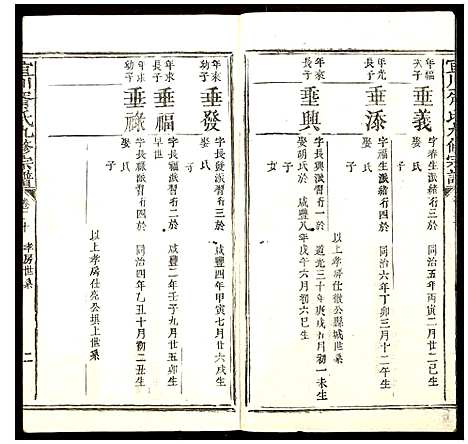 宜川胥氏九修宗譜
年福
次子
垂義
字春生派緒行三於
同治五年丙寅二月廿二戌生
娶 氏
子
年光
長子
垂添
字福生派緒行四於
同治六年丁卯三月十八
娶 氏
子
以上孝房仕徵公縣城世系
年來
長子
垂興
字長興派習行一於
道光三十年庚戌五月初一未生
娶胡氏
咸豐八年戊午六月初六巳生
子
年來
次子
垂發
字長發派習行三於
咸豐四年甲寅七月廿六戌生
娶 氏
子
年求
長子
垂福
字長福派習行二於
咸豐二年壬子九月廿五卯生
早世
年求
幼子
垂祿
字長祿派習行四於
同治四年乙丑十月初二丑生
娶 氏
子
以上孝房仕堯公垻上世系
宜川胥氏九修宗譜
卷二十
孝房世系
二